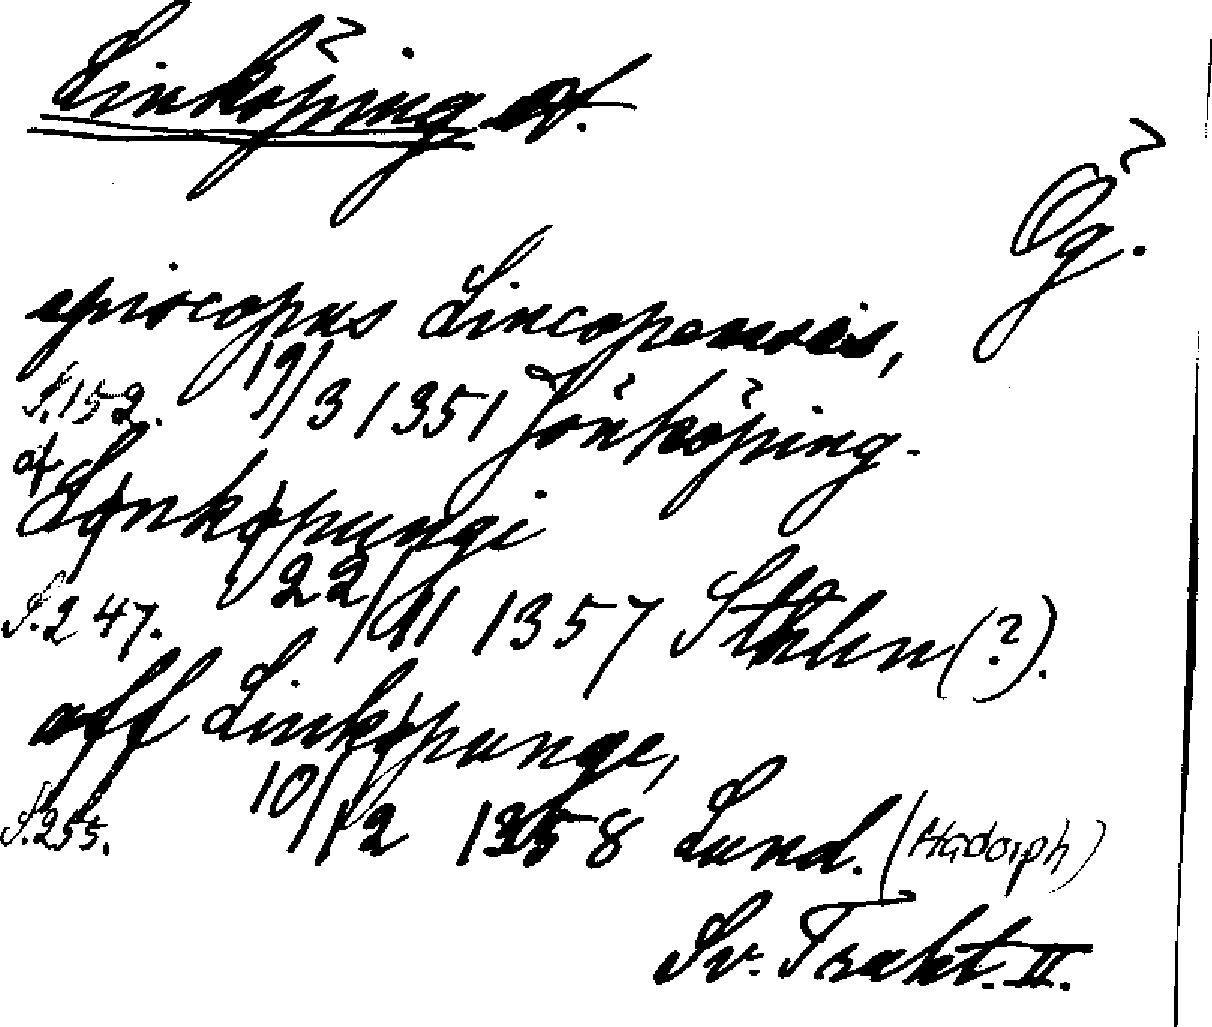 Linköping st.
Ög.
episcopus Lincopensis,
S. 152. 19/3 1351 Jönköping.
af Lønkøpungi
S. 247. 22/11 1357 Sthlm (?).
aff Linkøpunge,
S. 255. 10/12 1358 Lund. (Hadorph)
Sv. Trakt. II.